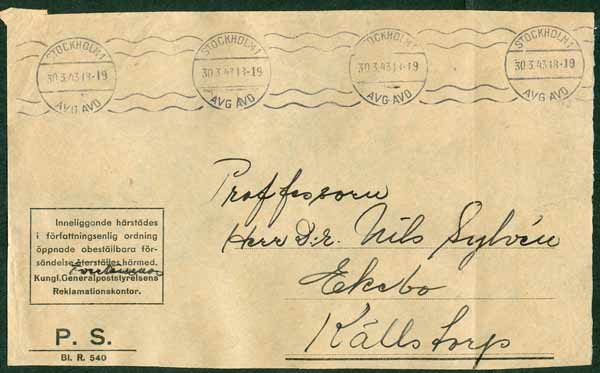 STOCKHOLM 1
30.3.43 18-19
AVG AVD
STOCKHOLM 1
30.3.43 18-19
AVG AVD
STOCKHOLM 1
30.3.43 18-19
AVG AVD
STOCKHOLM 1
30.3.43 18-19
AVG AVD
Proffessorn
Herr D:r. Nils Sylvén
Ekebo
Källstorp
Inneliggande härstädes
i författningsenlig ordning
öppnade obeställbara för-
sändelse återställes härmed.
Kungl. Generalpoststyrelsens
Reklamationskontor.
P. S.
Bl. R. 540